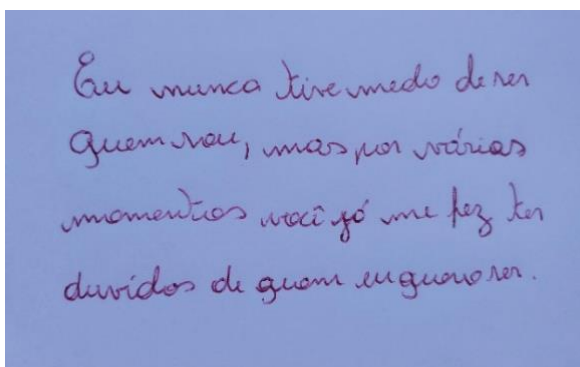 Eu nunca tive medo de ser
quem sou, mas por várias
momentos você já me fez ter
duvidos de quem eu quero ser.